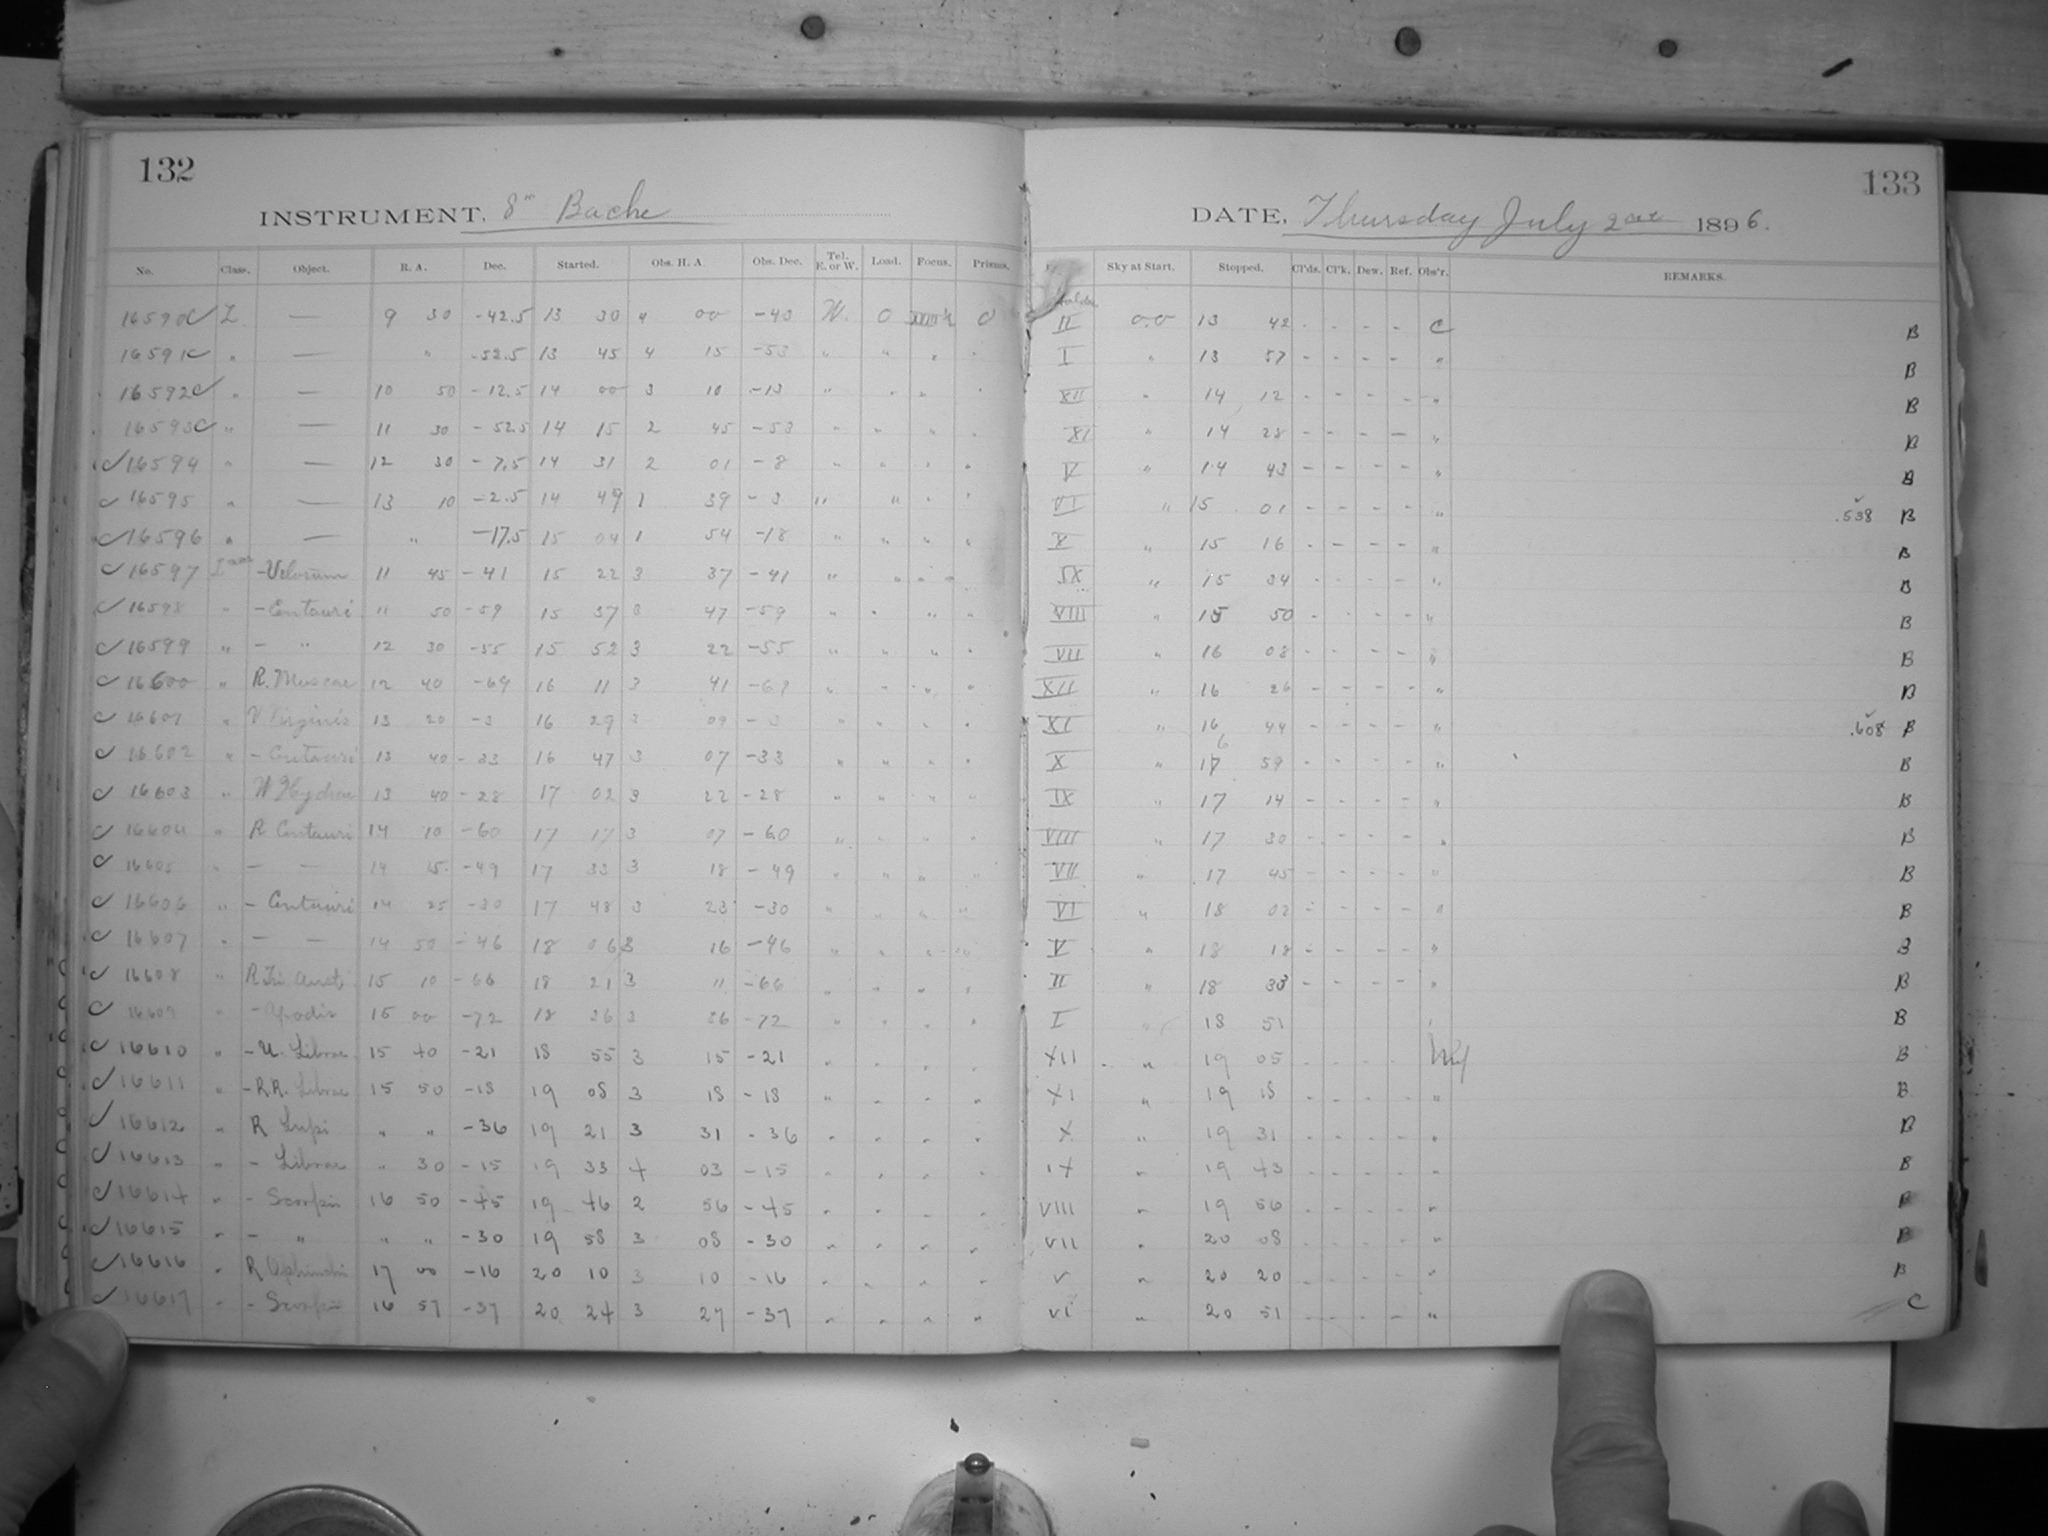 132 133
INSTRUMENT. 8" Bache DATE. Thursday July 2nd 1896.
No. Class. Object. R. A. Dec. Started. Obs. H. A Obs. Dec. Tel. E. or W. Load. Focus. Prisms. Sky at Start. Stopped. Cl'ds. Cl'k. Dew. Ref. Obs'r. REMARKS.
16590 C L — 9 30 -42.5 13 30 4 00 -43 W. 0 0 II 0.0 13 42 - - - - C B
16591 C " — " -52.5 13 45 4 15 -53 " " " " I " 13 57 - - - - " B
16592 C " — 10 50 -12.5 14 00 3 10 -13 " " " " XII " 14 12 - - - - " B
16593 C " — 11 30 -52.5 14 15 2 45 -53 " " " " XI " 14 28 - - - - " B
C 16594 " — 12 30 -7.5 14 31 2 01 -8 " " " " V " 14 43 - - - - " B
C 16595 " — 13 10 -2.5 14 49 1 39 -3 " " " " VI " 15 01 - - - - " .538 B
C 16596 " — " -17.5 15 04 1 54 -18 " " " " X " 15 16 - - - - " B
C 16597 - Velorum 11 45 -41 15 22 3 37 -41 " " " " IX " 15 34 - - - - " B
C 16598 " - Centauri 11 50 -59 15 37 3 47 -59 " " " " VIII " 15 50 - - - - " B
C 16599 " - " 12 30 -55 15 52 3 22 -55 " " " " VII " 16 08 - - - - " B
C 16600 " R. Muscae 12 40 -69 16 11 3 41 -69 " " " " XII " 16 26 - - - - " B
C 16601 " V Virginis 13 20 -3 16 29 3 09 -3 " " " " XI " 16 44 - - - - " .608 B
C 16602 " - Centauri 13 40 -33 16 47 3 07 -33 " " " " X " 17 6 59 - - - - " B
C 16603 " W Hydrae 13 40 -28 17 02 3 22 -28 " " " " IX " 17 14 - - - - " B
C 16604 " R Centauri 14 10 -60 17 17 3 07 -60 " " " " VIII " 17 30 - - - - " B
C 16605 " — — 14 15 -49 17 33 3 18 -49 " " " " VII " 17 45 - - - - " B
C 16606 " - Centauri 14 25 -30 17 48 3 23 -30 " " " " VI " 18 02 - - - - " B
C 16607 " — — 14 50 -46 18 06 3 16 -46 " " " " V " 18 18 - - - - " B
C 16608 " R Tri. Aust. 15 10 -66 18 21 3 11 -66 " " " " II " 18 33 - - - - " B
C 16609 " - Apodis 15 00 -72 18 36 3 36 -72 " " " " I " 18 51 " B
C 16610 " - U. Librae 15 40 -21 18 55 3 15 -21 " " " " XII " 19 05 - - - - B
C 16611 " - RR. Librae 15 50 -18 19 08 3 18 -18 " " " " XI " 19 18 - - - - " B
C 16612 " R Lupi " " -36 19 21 3 31 -36 " " " " X " 19 31 - - - - " B
C 16613 " - Librae " 30 -15 19 33 4 03 -15 " " " " IX " 19 43 - - - - " B
C 16614 " - Scorpii 16 50 -45 19 46 2 56 -45 " " " " VIII " 19 56 - - - - " B
C 16615 " - " " " -30 19 58 3 08 -30 " " " " VII " 20 08 - - - - " B
C 16616 " R Ophiuchi 17 00 -16 20 10 3 10 -16 " " " " V " 20 20 - - - - " B
C 16617 " - Scorpii 16 57 -37 20 24 3 27 -37 " " " " VI " 20 51 - - - - " C